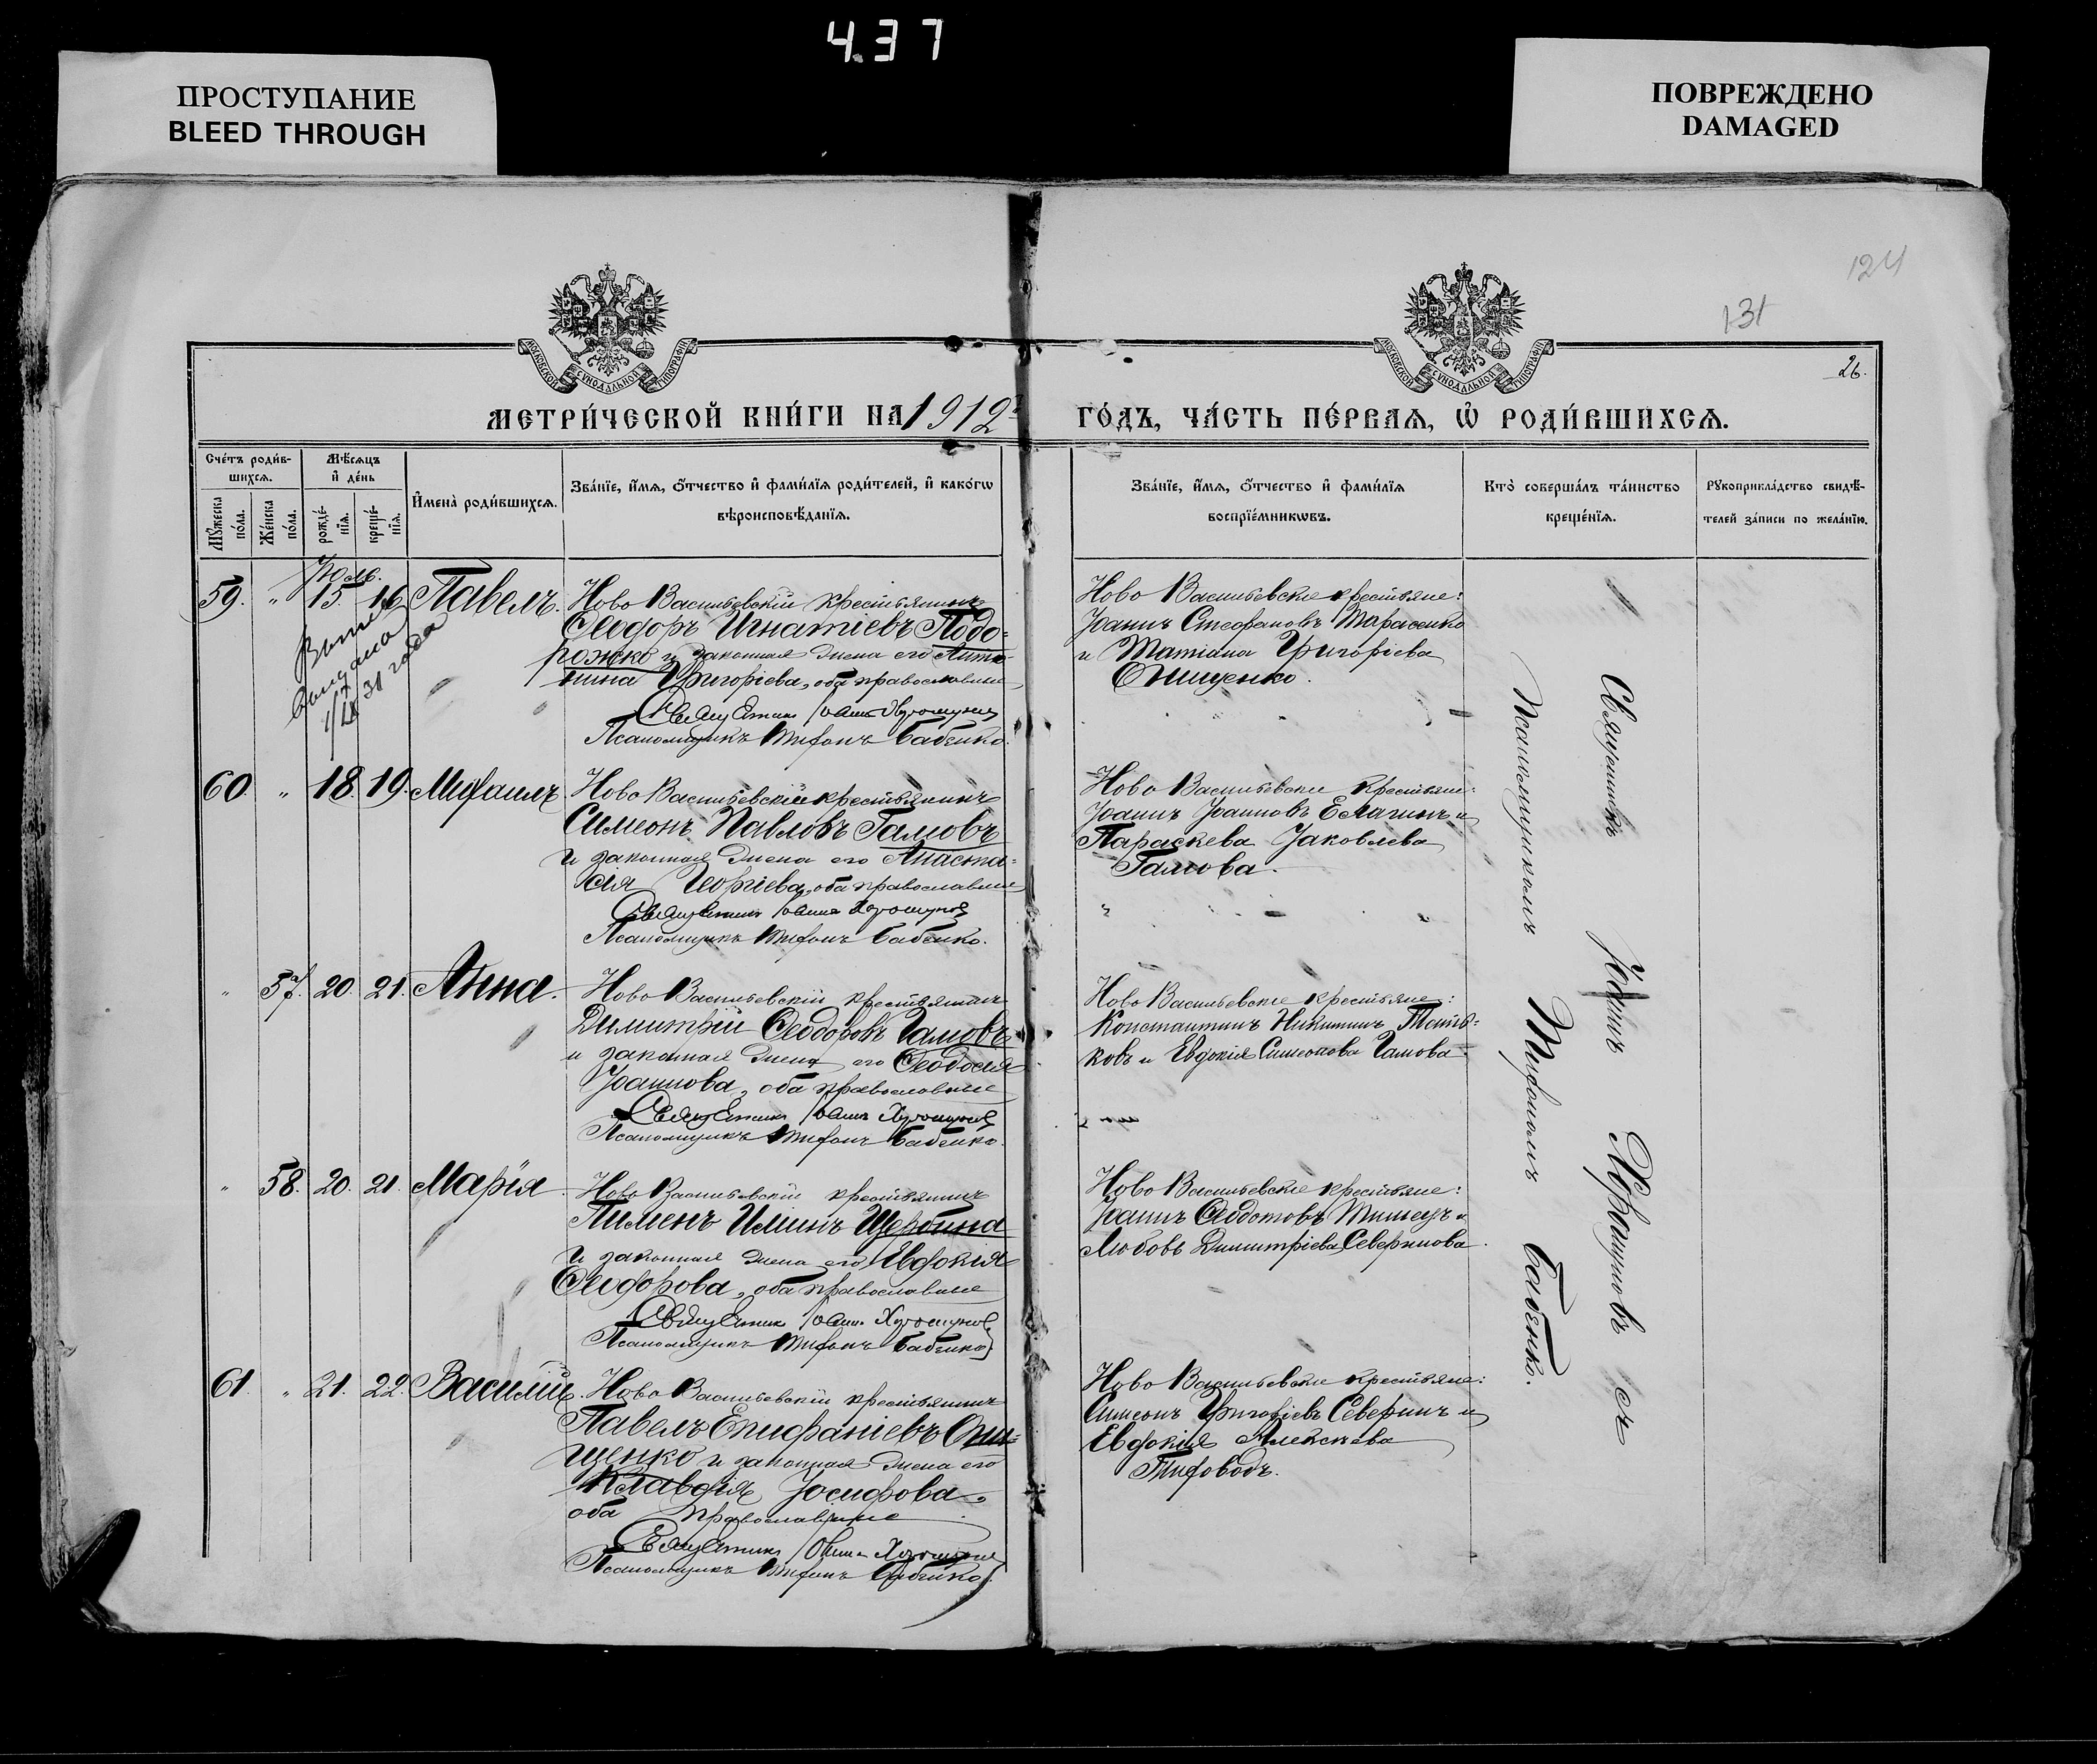 4.37
ПРОСТУПАНИЕ
BLEED THROUGH
ПОВРЕЖДЕНО
DAMAGED
124
131
26.
МОСКОВСКОЙ СѴНОДАЛЬНОЙ ТИПОГРАФІИ
МОСКОВСКОЙ СѴНОДАЛЬНОЙ ТИПОГРАФІИ
МЕТРИ́ЧЕСКОЙ КНИ́ГИ НА 1912 ГО́ДЪ, ЧА́СТЬ ПЕ́РВАѦ, Ѡ҆ РОДИ́ВШИХСѦ.
Сче́тъ роди́в-
шихсѧ.
Мꙋ́жеска по́ла.
Же́нска по́ла.
Мѣ́сѧцъ
и҆ де́нь
рожде́-
нїѧ.
креще́-
нїѧ.
И҆мена̀ роди́вшихсѧ.
Зва́нїе, и҆́мѧ, ѻ҆́тчество и҆ фами́лїѧ роди́телей, и҆ како́гѡ
вѣроисповѣ́данїѧ.
Зва́нїе, и҆́мѧ, ѻ҆́тчество и҆ фами́лїѧ
воспрїе́мникѡвъ.
Кто̀ соверша́лъ та́инство
креще́нїѧ.
Рꙋкоприкла́дство свидѣ́-
телей за́писи по жела́нїю.
Іюль.
59. " 15. 16. Павелъ.
Ново Васильевскій крестьянинъ
Ѳеодоръ Игнатіевъ Подо-
рожко и законная жена его Анто-
нина Григоріева, оба православные
Священникъ Іоаннъ Хорошуновъ
Псаломщикъ Тифонъ Бабенко.
Ново Васильевские крестьяне:
Іоаннъ Стефановъ Тарасенко
и Татіана Григоріева
Онищенко.
31 года
60. " 18. 19. Михаилъ.
Ново Васильевскій крестьянинъ
Симеонъ Павловъ Гамовъ
и законная жена его Анаста-
сія Георгіева, оба православные
Священникъ Іоаннъ Хорошуновъ
Псаломщикъ Тифонъ Бабенко.
Ново Васильевские крестьяне:
Іоаннъ Іоанновъ Елагинъ и
Параскева Іаковлева
Гамова.
" 57. 20. 21. Анна.
Ново Васильевскій крестьянинъ
Димитрій Ѳеодоровъ Гамовъ
и законная жена его Ѳеодосія
Іоаннова, оба православные
Священникъ Іоаннъ Хорошуновъ
Псаломщикъ Тифонъ Бабенко.
Ново Васильевские крестьяне:
Константинъ Никитинъ
и Евдокія Симеонова Гамова.
" 58. 20. 21. Марія
Ново Васильевскій крестьянинъ
Пименъ Илiинъ Щербина
и законная жена его Евдокія
Ѳеодорова, оба православные
Священникъ Іоаннъ Хорошуновъ
Псаломщикъ Тифонъ Бабенко
Ново Васильевские крестьяне:
Іоаннъ Ѳеодотовъ и
Любовь Димитріева Северинова.
61. " 21. 22. Василій.
Ново Васильевскій крестьянинъ
Павелъ Епифаніевъ Они-
щенко и законная жена его
Клавдія Іосифова,
оба православные
Священникъ Іоаннъ Хорошуновъ
Псаломщикъ Тифонъ Бабенко.
Ново Васильевские крестьяне:
Симеонъ Григоріевъ Северинъ и
Евдокія Алексіева
Священникъ Іоаннъ Хорошуновъ съ
Псаломщикомъ Тифономъ Бабенко.